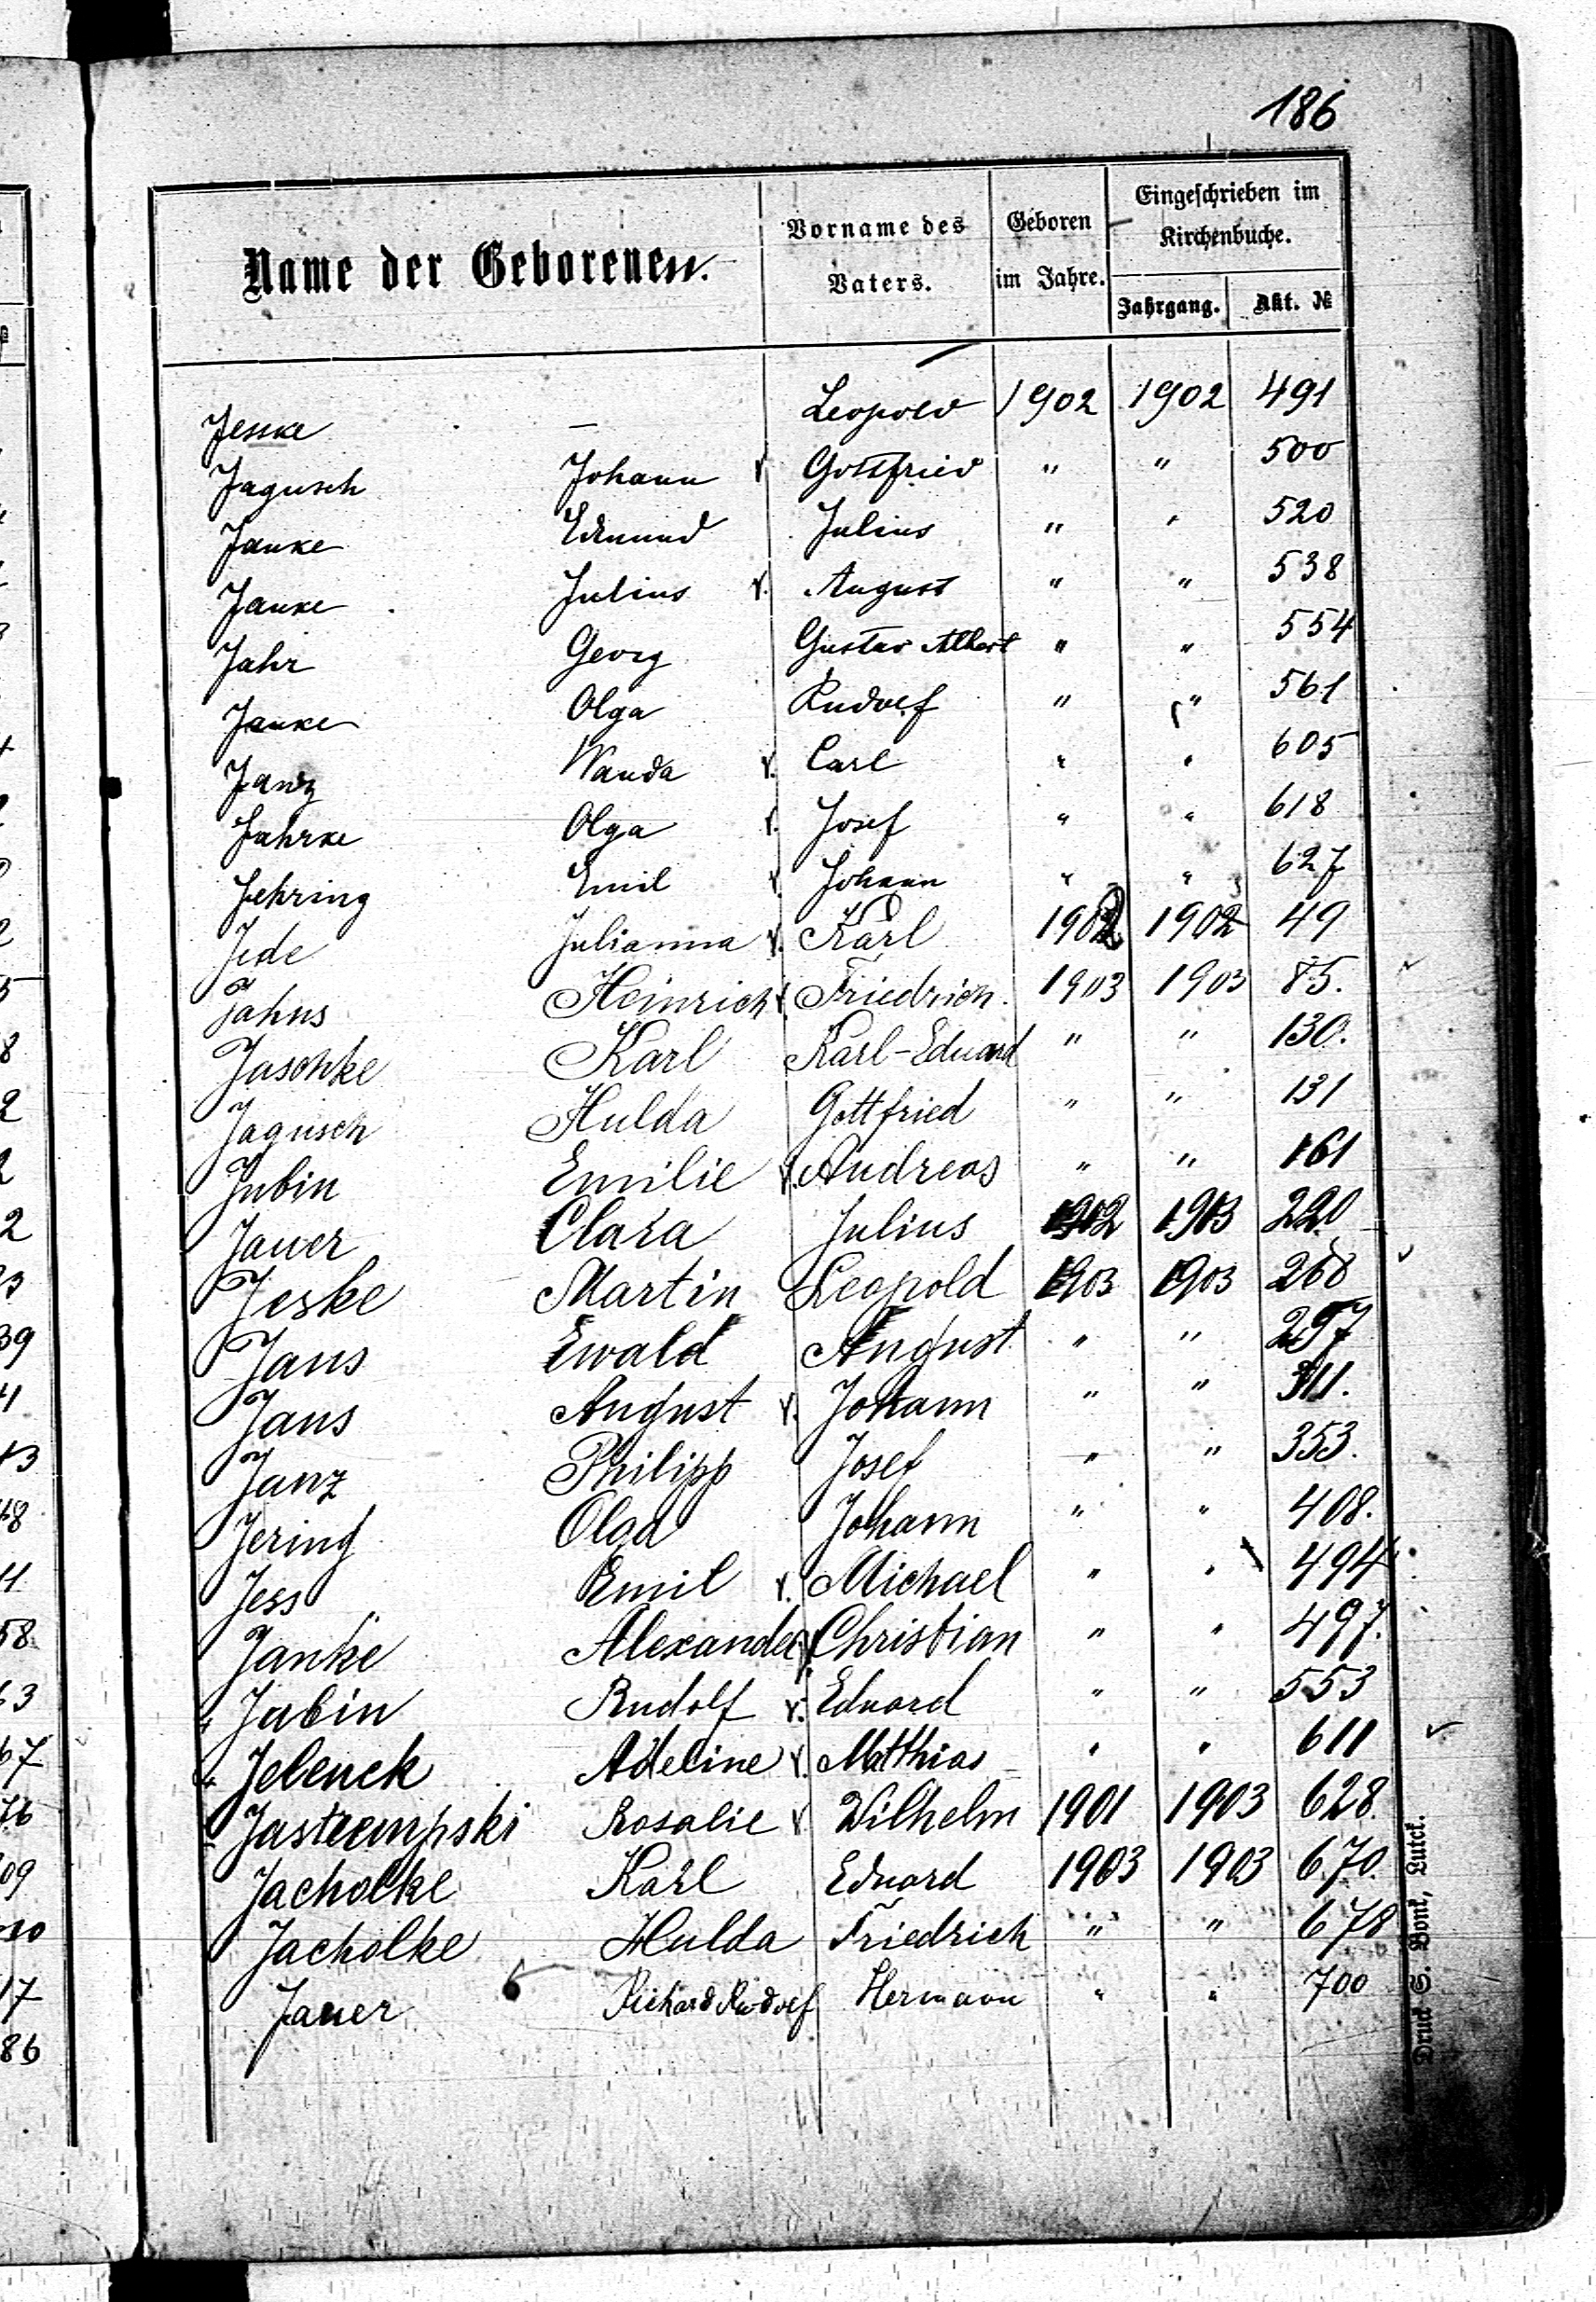 186
Name der Geborenen. Vorname des Vaters. Geboren im Jahre. Eingeschrieben im Kirchenbuche.
Jahrgang. Akt. №
Jeske — Leopold 1902 1902 491
Jagusch Johann v. Gottfried " " 500
Janke Edmund Julius " " 520
Janke Julius v. August " " 538
Jahr Georg Gustav Albert " " 554
Janke Olga Rudolf " " 561
Janz Wanda v. Carl " " 605
Jahrke Olga v. Josef " " 618
Jehring Emil v. Johann " " 627
Jede Julianna v. Karl 1902 1902 49
Jahns Heinrich v. Friedrich 1903 1903 85.
Jaschke Karl Karl-Eduard " " 130.
Jagusch Hulda Gottfried " " 131
Jubin Emilie v. Andreas " " 161
Jauer Clara Julius 1902 1903 220
Jeske Martin Leopold 1903 1903 268
Jans Ewald August " " 297
Jans August v. Johann " " 311.
Janz Philipp Josef " " 353.
Jering Olga Johann " " 408.
Jess Emil v. Michael " " 494
Janke Alexander v. Christian " " 497.
Jubin Rudolf v. Eduard " " 553
Jelenek Adeline v. Matthias " " 611
Jastrempski Rosalie v Wilhelm 1901 1903 628.
Jacholke Karl Eduard 1903 1903 670.
Jacholke Hulda Friedrich " " 678
Jauer Richard Rudolf Hermann " " 700
Druck S. Bonk, Lutck.